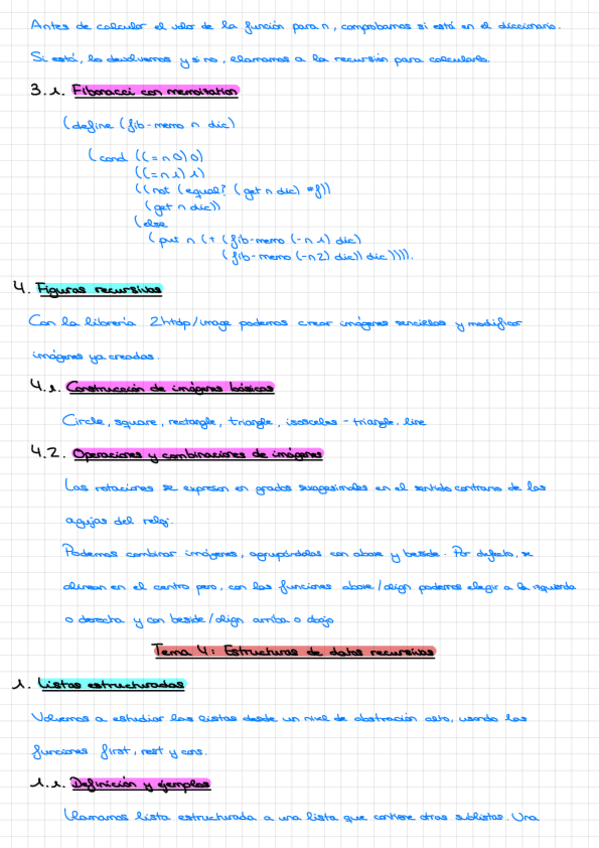 Antes de calcular el valor de la función para n, comprobamos si está en el diccionario.
Si está, lo devolvemos y si no, llamamos a la recursión para calcularlo.
3.1. Fibonacci con memoization
(define (fib-memo n dic)
(cond ((= n 0) 0)
((= n 1) 1)
((not (equal? (get n dic) #f))
(get n dic))
(else
(put n (+ (fib-memo (- n 1) dic)
(fib-memo (- n 2) dic)) dic)))).
4. Figuras recursivas
Con la librería 2htdp/image podemos crear imágenes sencillas y modificar
imágenes ya creadas.
4.1. Construcción de imágenes básicas
Circle, square, rectangle, triangle, isosceles-triangle, line
4.2. Operaciones y combinaciones de imágenes
Las rotaciones se expresan en grados sexagesimales en el sentido contrario de las
agujas del reloj.
Podemos combinar imágenes, agrupándolas con above y beside. Por defecto, se
alinean en el centro pero, con las funciones above/align podemos elegir a la izquierda
o derecha y con beside/align arriba o abajo
Tema 4: Estructuras de datos recursivas
1. Listas estructuradas
Volvemos a estudiar las listas desde un nivel de abstracción alto, usando las
funciones first, rest y cons.
1.1. Definición y ejemplos
Llamamos lista estructurada a una lista que contiene otras sublistas. Una